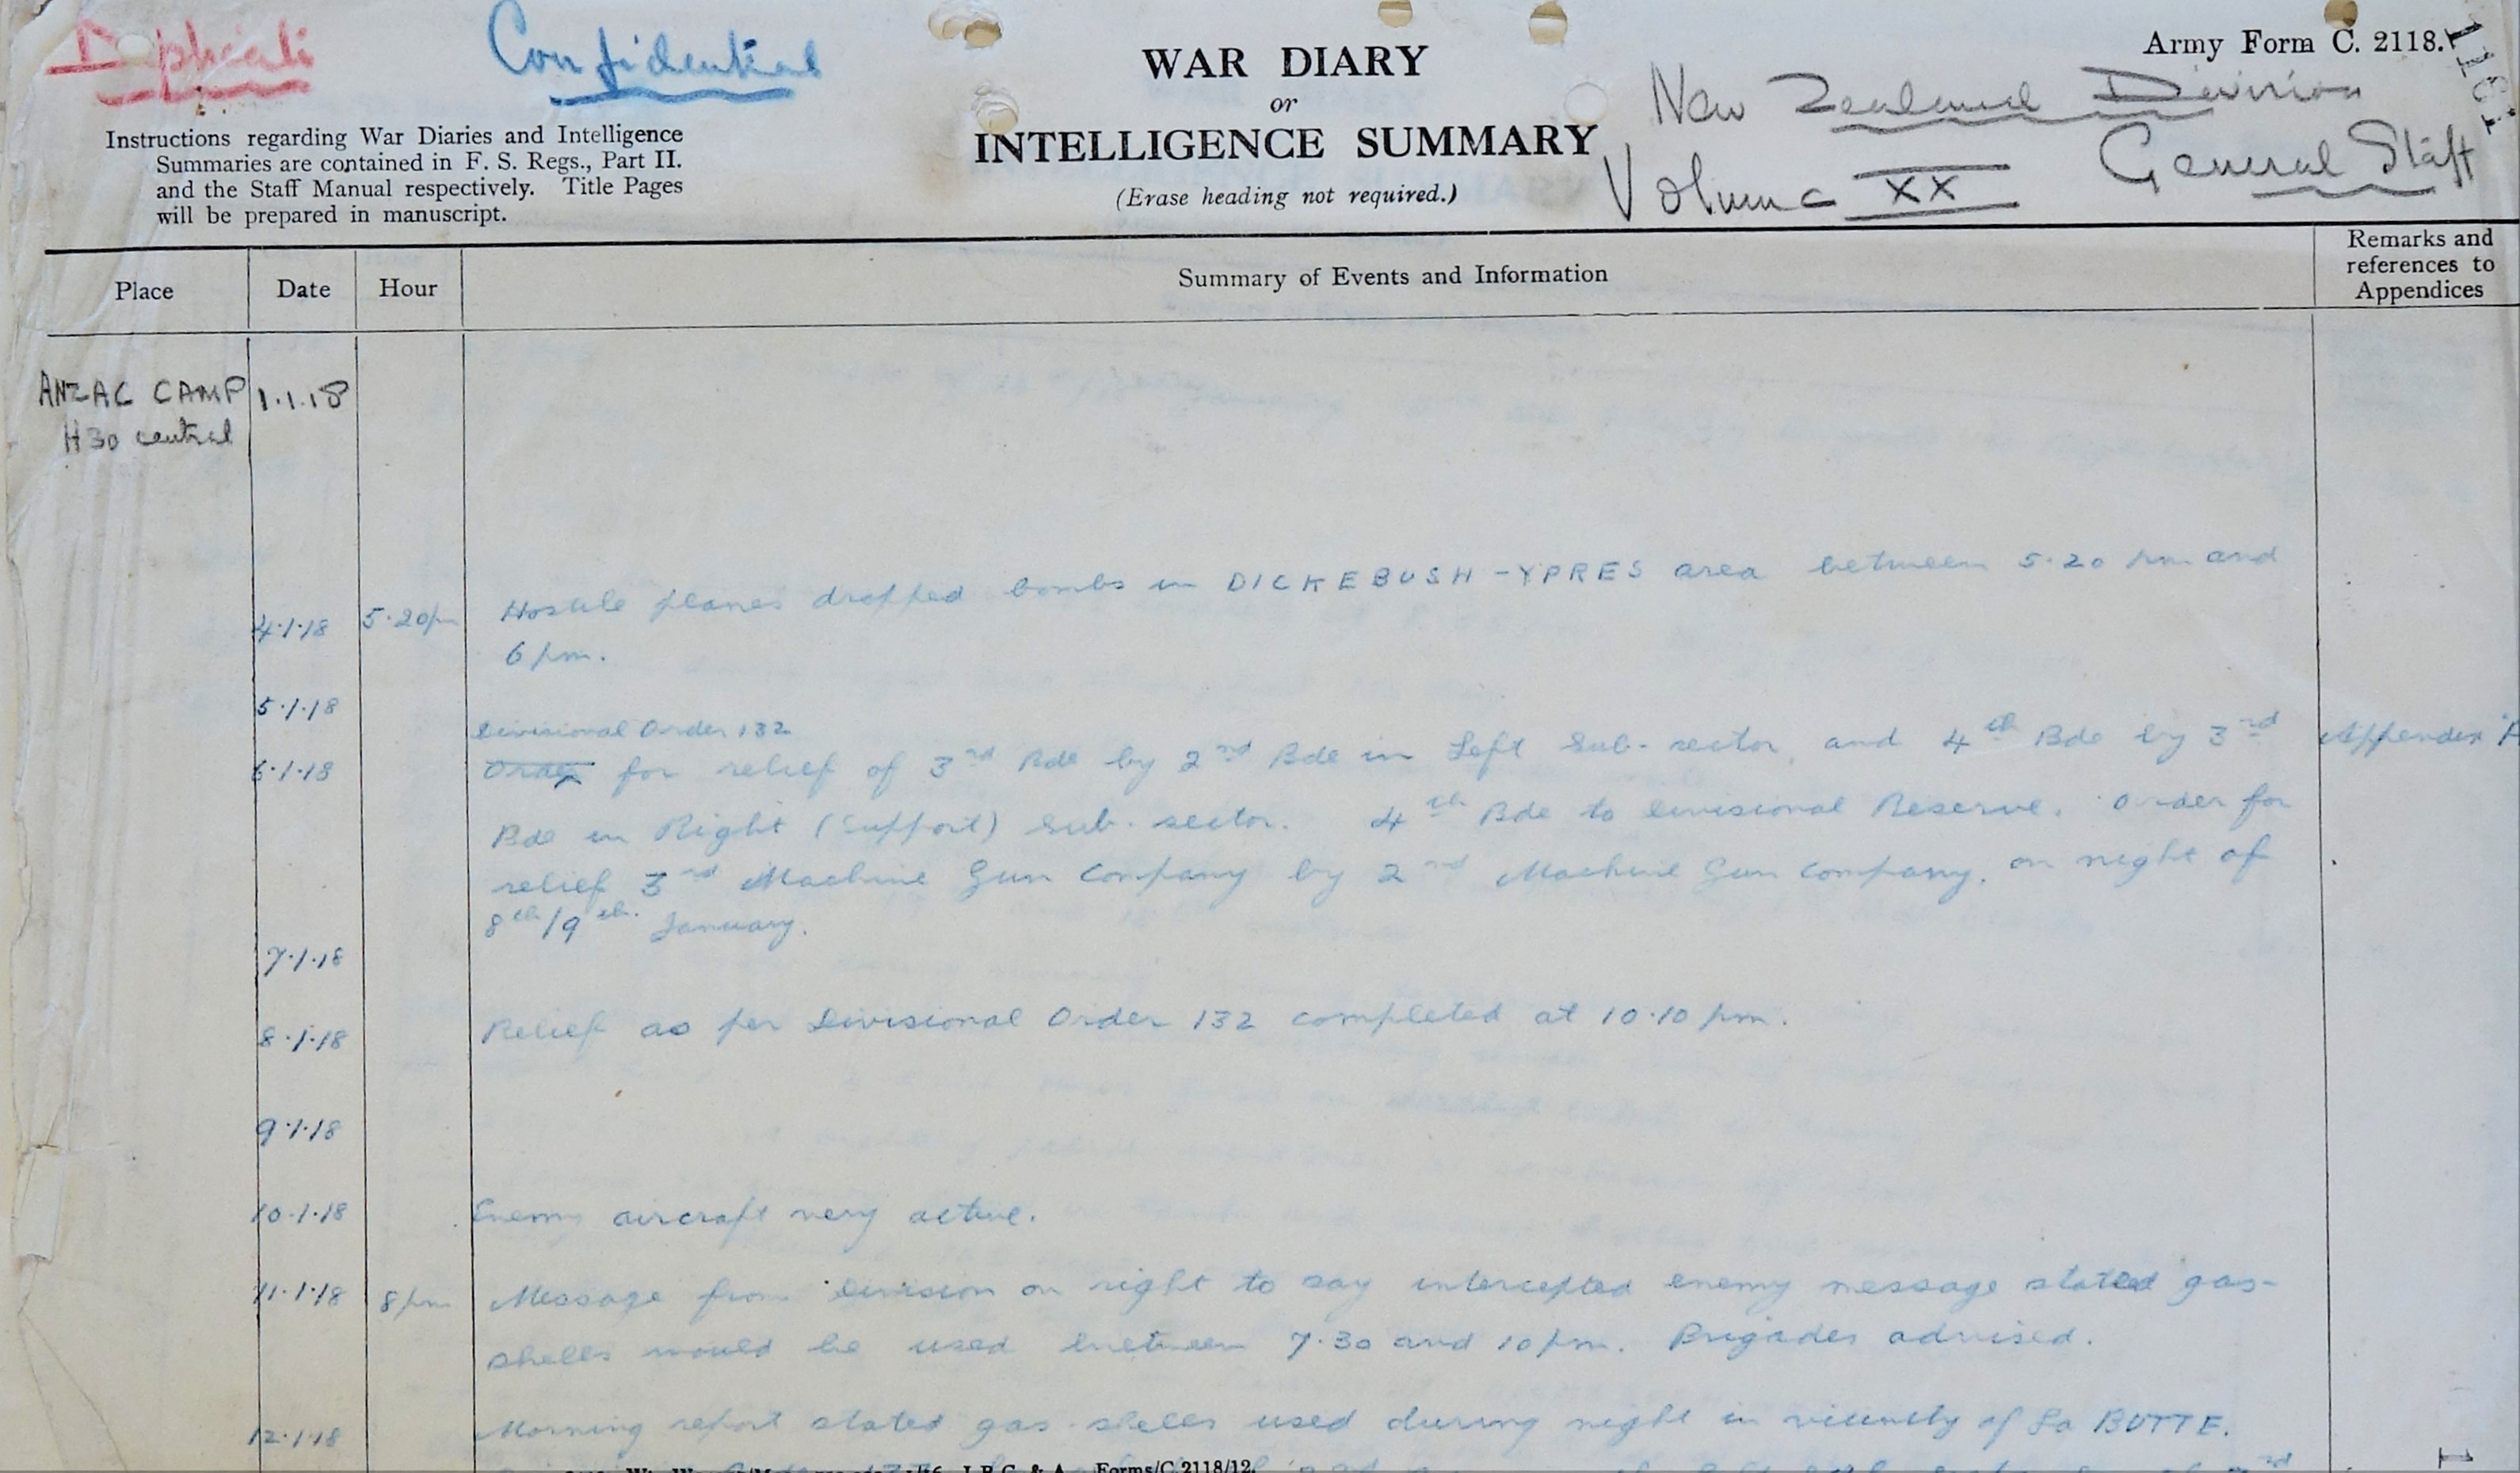 Duplicate
Confidential
Army Form C. 2118.
1131
WAR DIARY
or
INTELLIGENCE SUMMARY
(Erase heading not required.)
New Zealand Division
General Staff
Volume XX
Instructions regarding War Diaries and Intelligence
Summaries are contained in F. S. Regs., Part II.
and the Staff Manual respectively. Title Pages
will be prepared in manuscript.
Place Date Hour Summary of Events and Information Remarks and
references to
Appendices
ANZAC CAMP 1.1.18
H30 central
4.1.18 5.20pm Hostile planes dropped bombs in DICKEBUSH-YPRES area between 5.20 pm and
6 pm.
5.1.18
Divisional Order 132
6.1.18 Order for relief of 3rd Bde by 2nd Bde in Left Sub-sector, and 4th Bde by 3rd Appendix A
Bde in Right (Support) Sub-sector. 4th Bde to Divisional Reserve. Order for
relief 3rd Machine Gun Company by 2nd Machine Gun Company, on night of
8th/9th January.
7.1.18
8.1.18 Relief as per Divisional Order 132 completed at 10.10 pm.
9.1.18
10.1.18 Enemy aircraft very active.
11.1.18 8pm Message from Division on right to say intercepted enemy message stated gas-
shells would be used between 7.30 and 10 pm. Brigades advised.
12.1.18 Morning report stated gas-shells used during night in vicinity of La BUTTE.
Forms/C.2118/12.